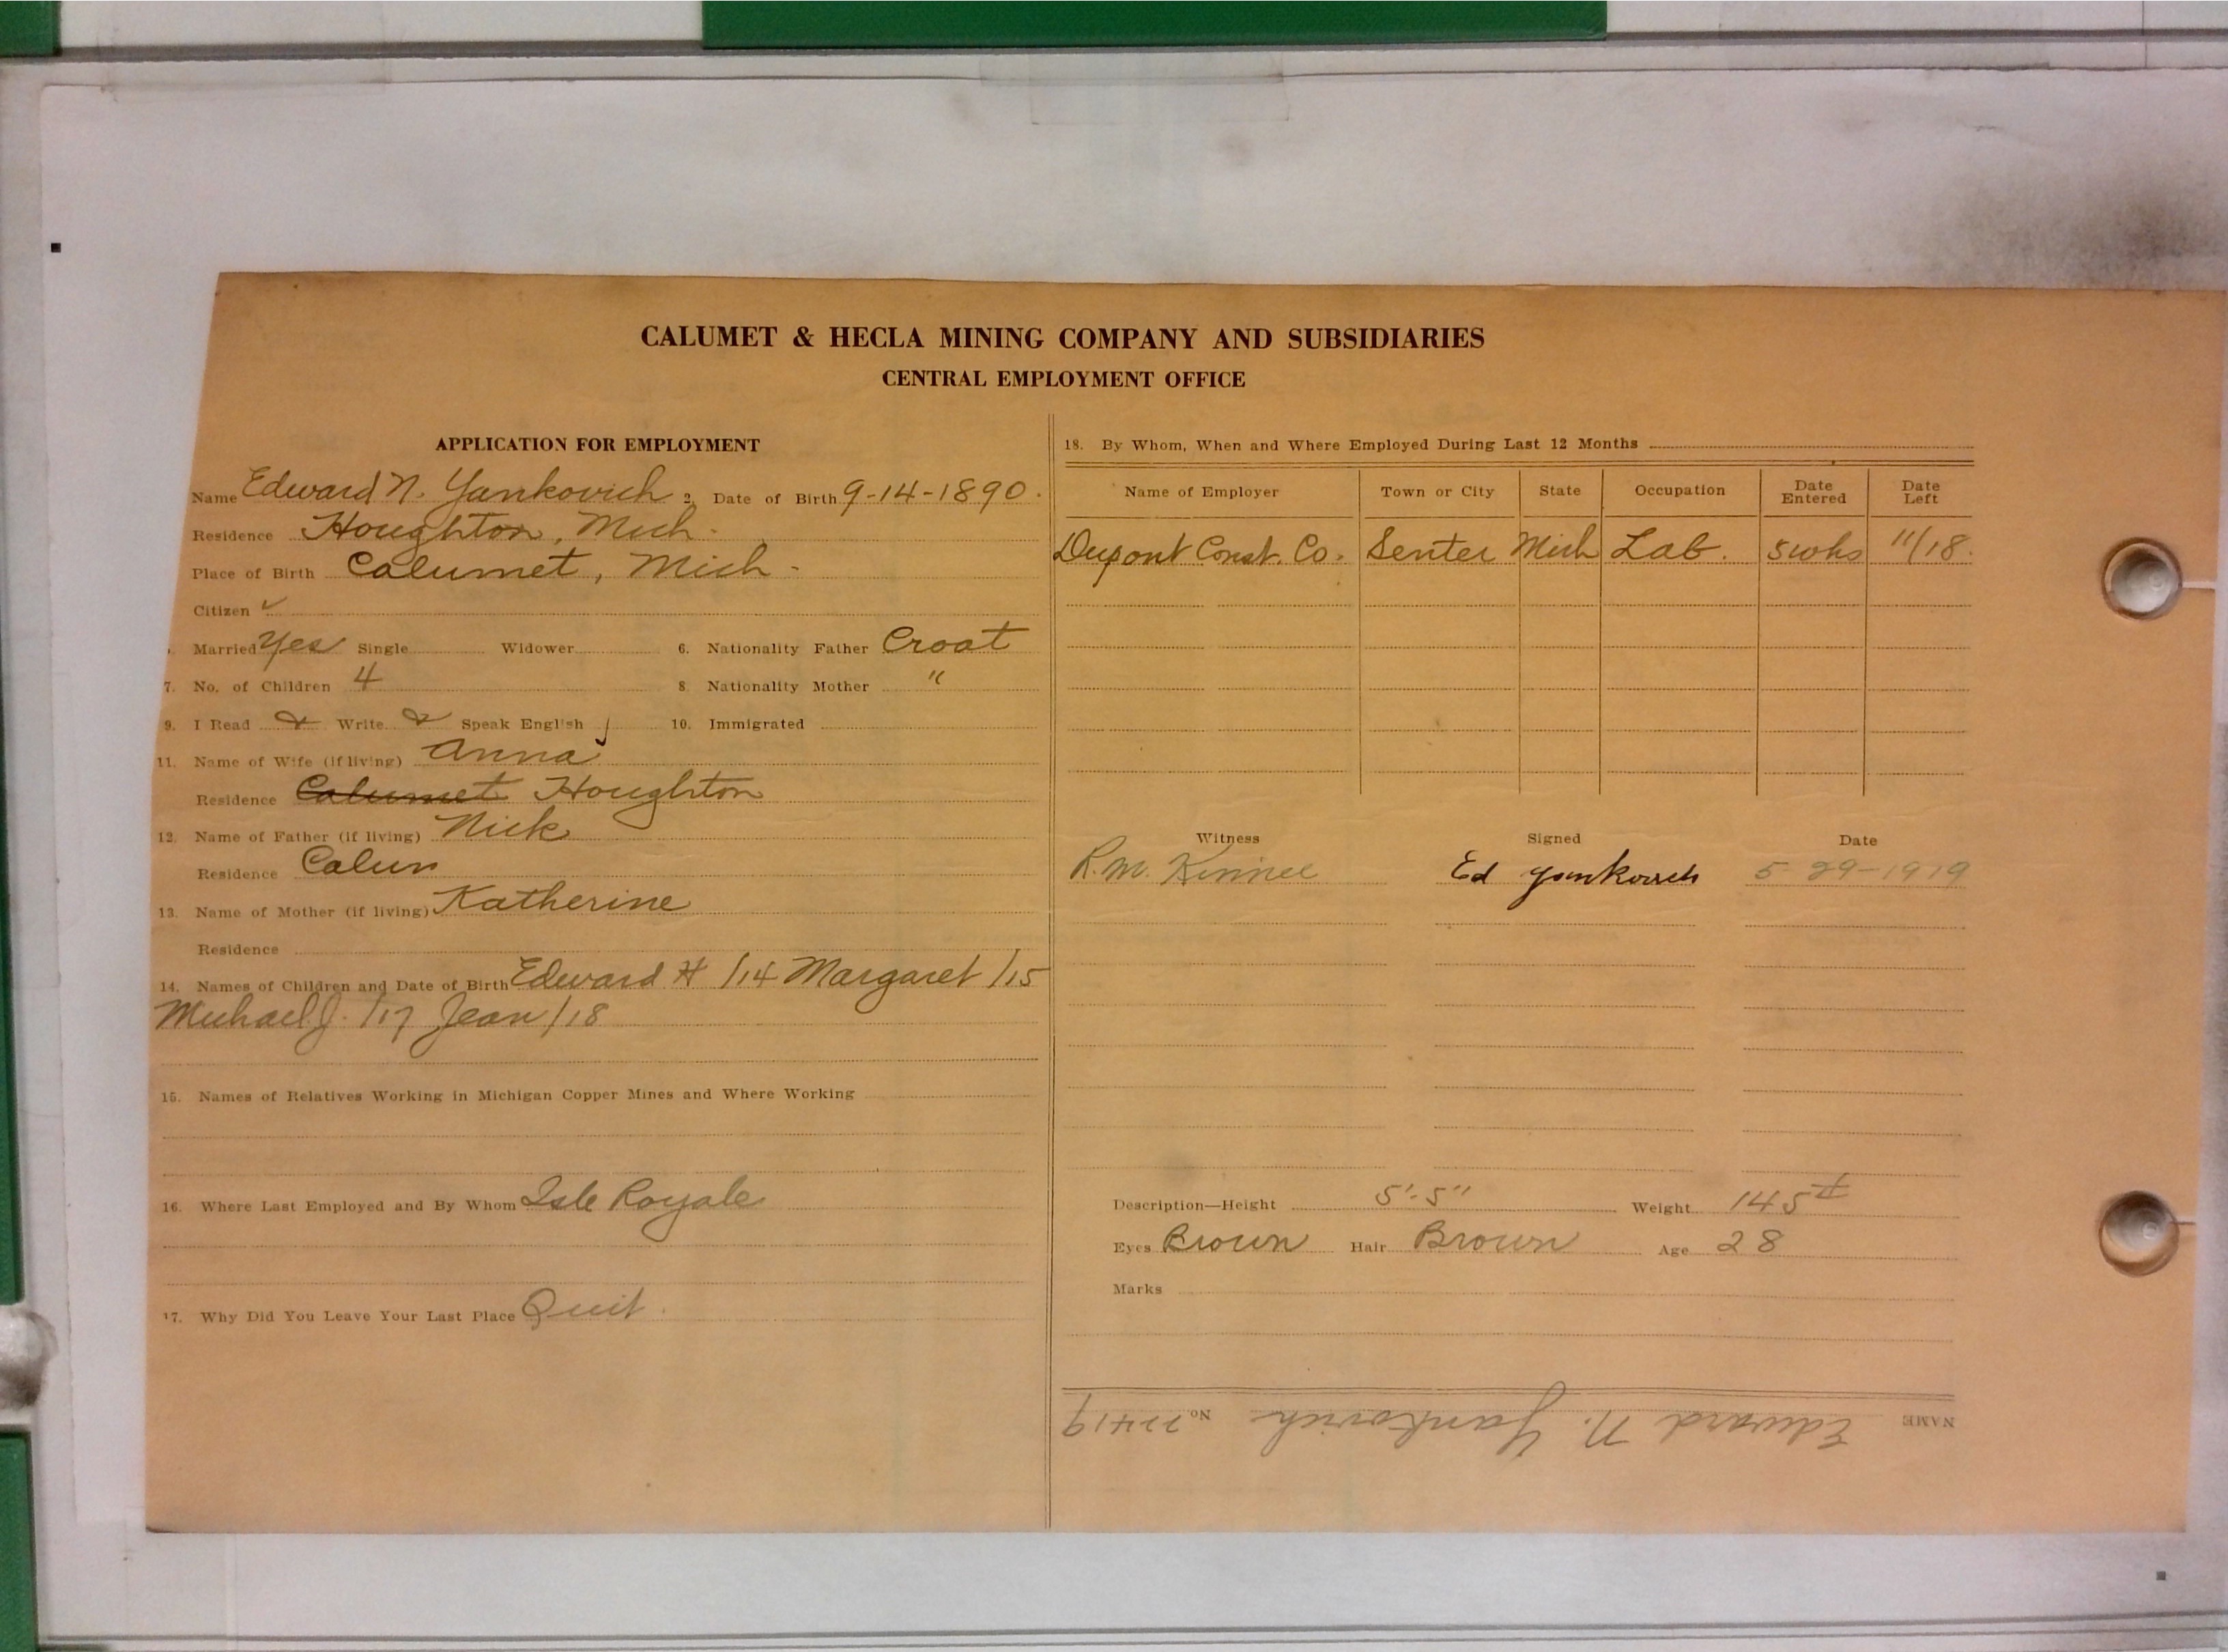 CALUMET & HECLA MINING COMPANY AND SUBSIDIARIES
CENTRAL EMPLOYMENT OFFICE
APPLICATION FOR EMPLOYMENT
Name Edward N. Yankovich 2. Date of Birth 9-14-1890.
Residence Houghton, Mich.
Place of Birth Calumet, Mich.
Citizen ✓
Married Yes Single Widower 6. Nationality Father Croat
7. No. of Children 4 8 Nationality Mother "
9. I Read & Write & Speak English 10. Immigrated
11. Name of Wife (if living) Anna
Residence Calumet Houghton
12. Name of Father (if living) Nick
Residence Calum
13. Name of Mother (if living) Katherine
Residence
14. Names of Children and Date of Birth Edward H /14 Margaret /15
Michael J. /17 Jean /18
15. Names of Relatives Working in Michigan Copper Mines and Where Working
16. Where Last Employed and By Whom Isle Royale
17. Why Did You Leave Your Last Place Quit.
18. By Whom, When and Where Employed During Last 12 Months
Name of Employer Town or City State Occupation Date Entered Date Left
Dupont Const. Co. Senter Mich Lab. 5 wks 11/18.
Witness Signed Date
R. M. Ed Yankovich 5 29-1919
Description—Height 5'-5" Weight 145#
Eyes Brown Hair Brown Age 28
Marks
NAME Edward N. Yankovich No. 22419